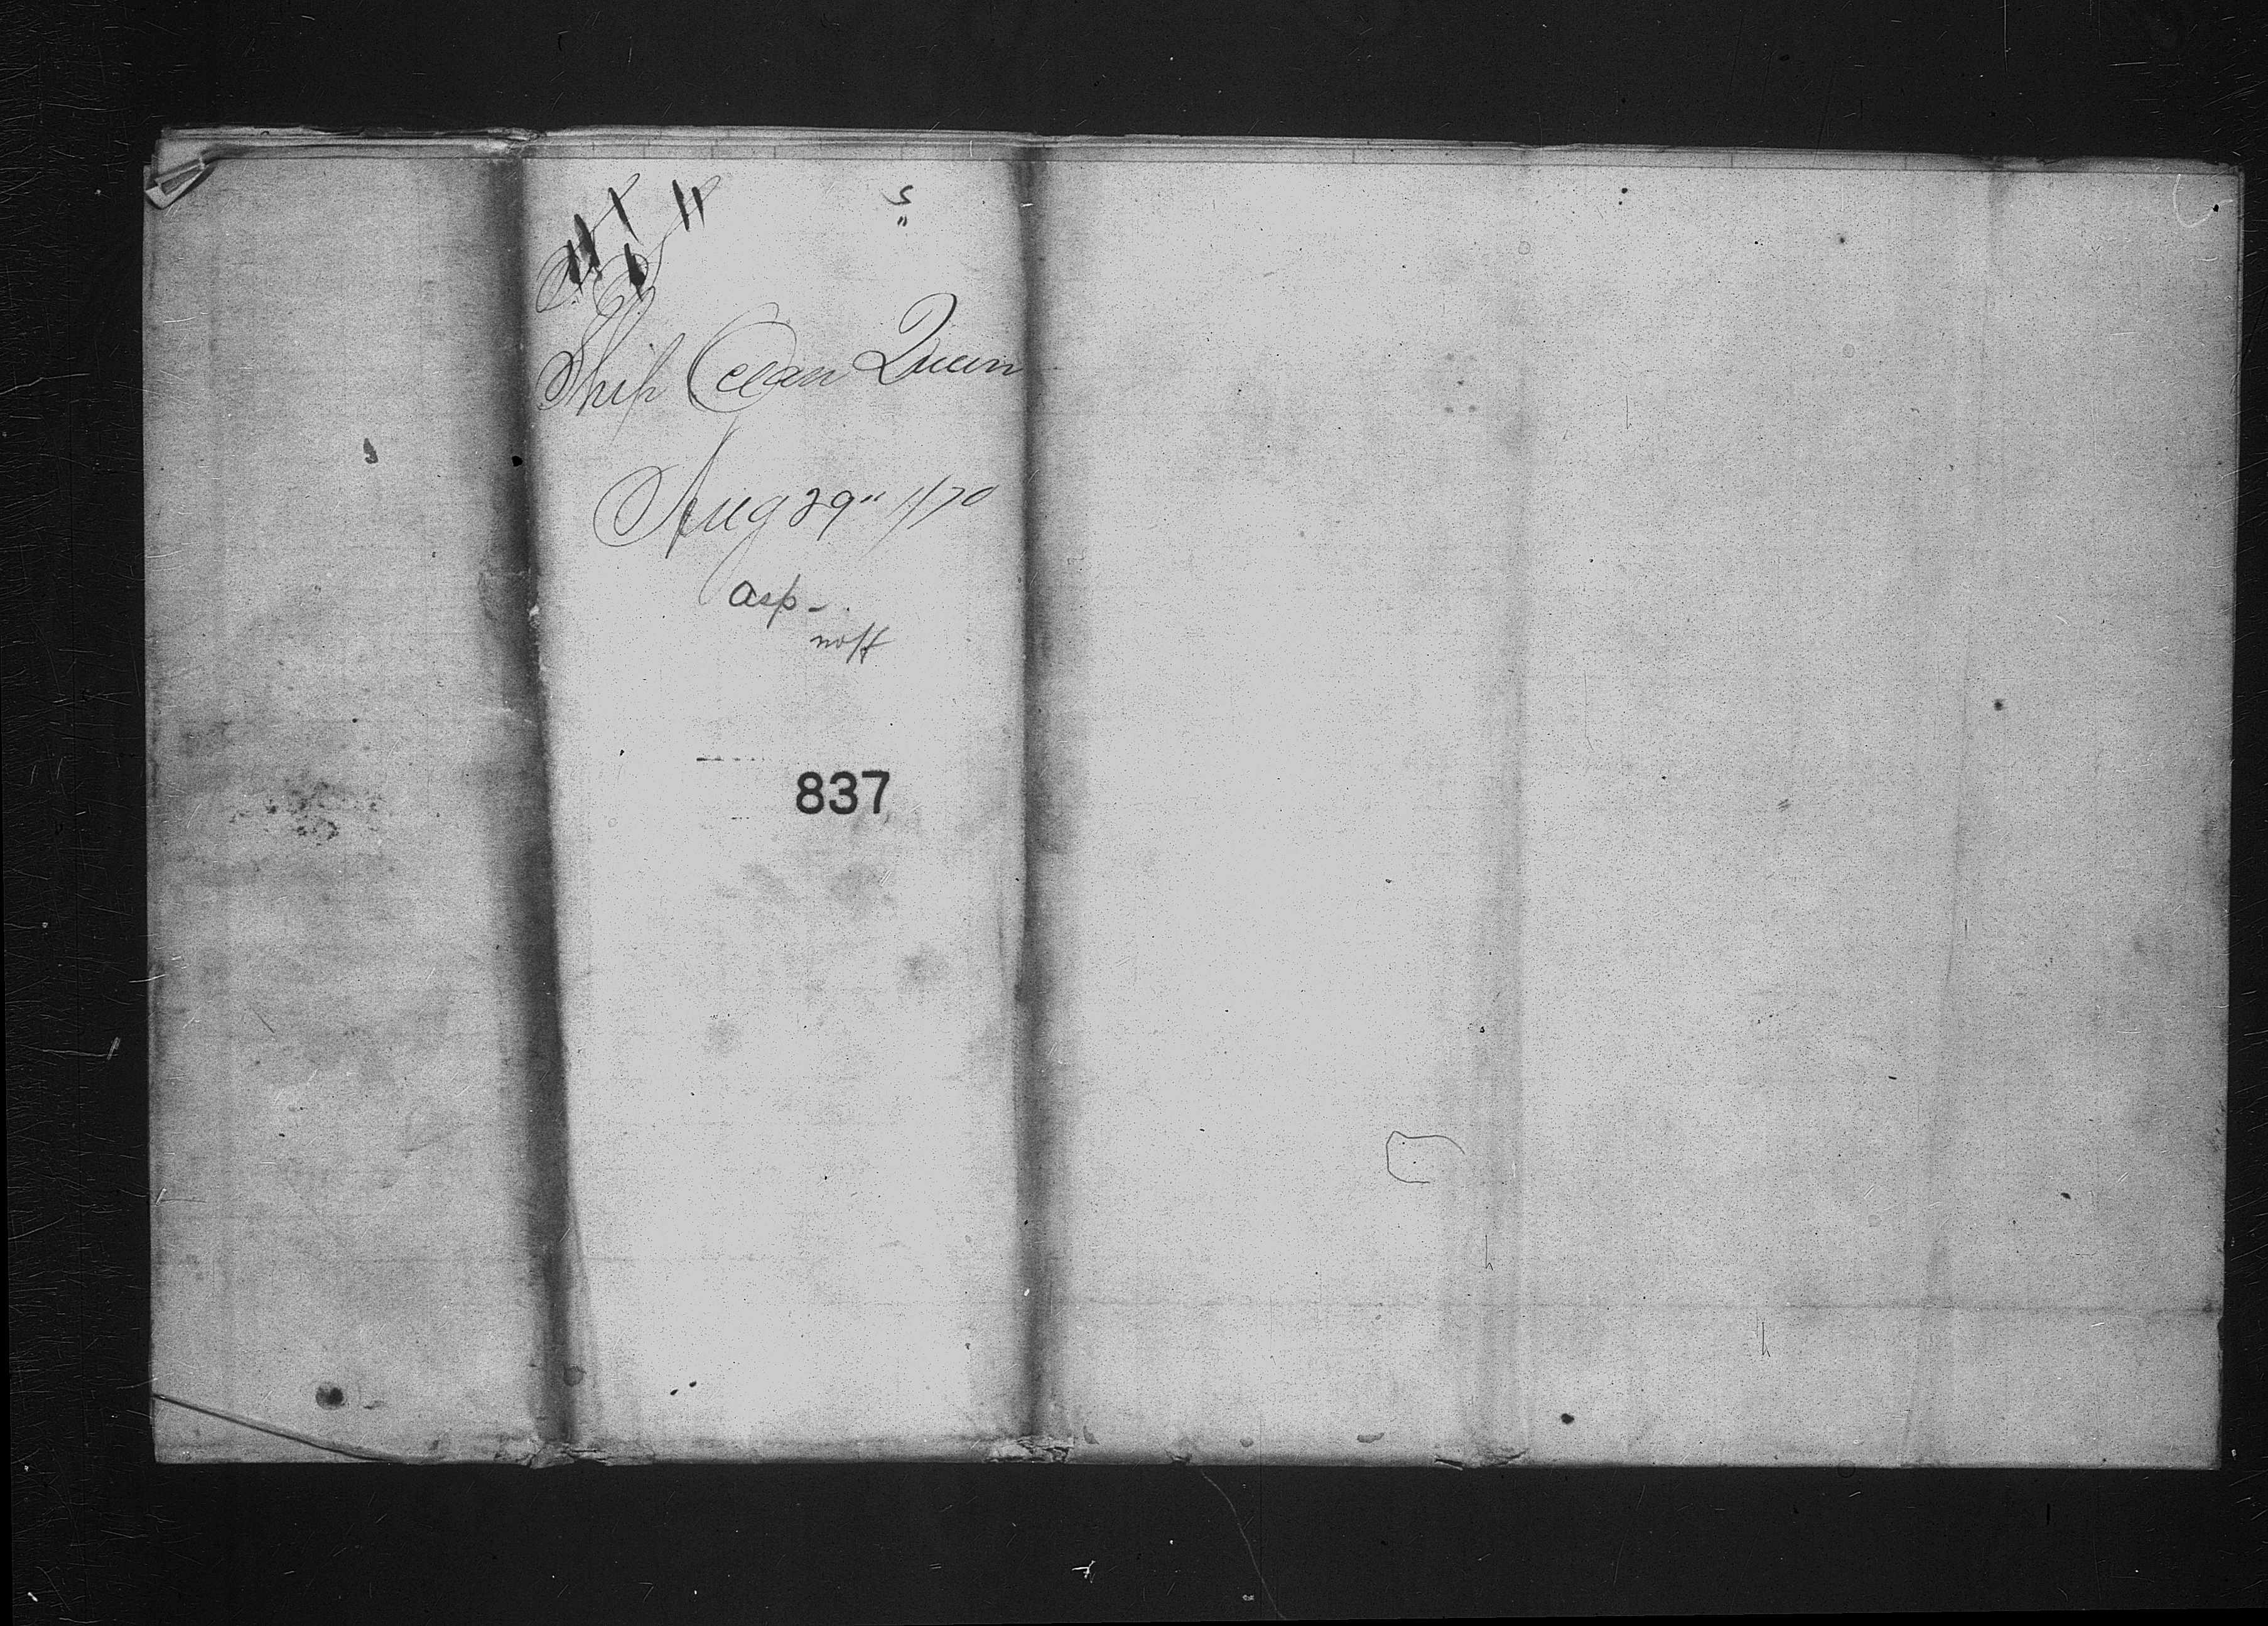 Ship Ocean Queen
Aug 29" 1870
Asp -
837